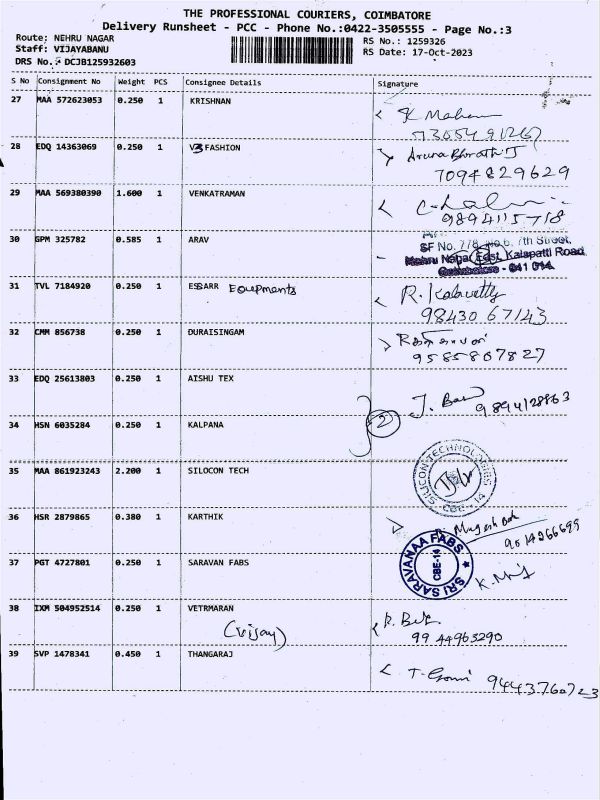 THE PROFESSIONAL COURIERS, COIMBATORE
Delivery Runsheet - PCC - Phone No.:0422-3505555 - Page No.:3
Route: NEHRU NAGAR
Staff: VIJAYABANU
DRS No. : DCJB125932603
RS No.: 1259326
RS Date: 17-Oct-2023
S No Consignment No Weight PCS Consignee Details Signature
27 MAA 572623053 0.250 1 KRISHNAN
K Mohan
28 EDQ 14363069 0.250 1 V3 FASHION
7094829629
29 MAA 569380390 1.600 1 VENKATRAMAN
9894115718
30 GPM 325782 0.585 1 ARAV
SF No. 778, No.6, 7th Street,
Nehru Nagar East, Kalapatti Road
Coimbatore - 641 014.
31 TVL 7184920 0.250 1 ESSARR Equipments
R.
98430 67143
32 CMM 856738 0.250 1 DURAISINGAM
9585807827
33 EDQ 25613803 0.250 1 AISHU TEX
J.
34 HSN 6035284 0.250 1 KALPANA
2
35 MAA 861923243 2.200 1 SILOCON TECH
SILICON TECHNOLOGIES
CBE - 14
36 HSR 2879865 0.380 1 KARTHIK
37 PGT 4727801 0.250 1 SARAVAN FABS
SRI SARAVANAA FABS
CBE-14
38 IXM 504952514 0.250 1 VETRMARAN
(Vijay)
99 44963290
39 SVP 1478341 0.450 1 THANGARAJ
9443760723